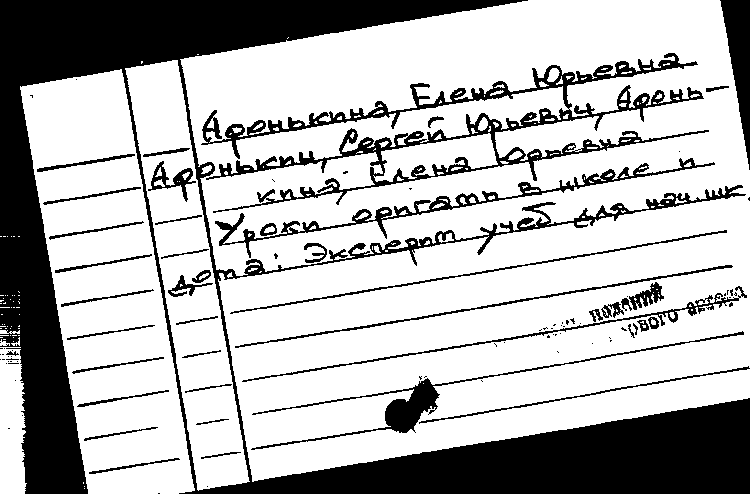 Афонькина, Елена Юрьевна
Афонькин, Сергей Юрьевич, Афонь-
кина, Елена Юрьевна
Уроки оригами в школе и
дома: Эксперим учеб. для нач. шк.